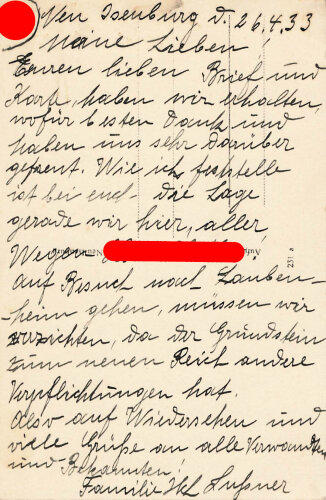 Neu Isenburg d. 26.4.33
Meine Lieben!
Euren lieben Brief und
Karte, haben wir erhalten,
wofür besten Dank und
haben uns sehr darüber
gefreut. Wie ich feststelle
ist bei euch die Lage
gerade wie hier, aller
Wegen
auf Besuch nach Lauben-
heim gehen, müssen wir
verzichten, da der Grundstein
zum neuen Reich andere
Verpflichtungen hat.
Also auf Wiedersehen und
viele Grüße an alle Verwandten
und Bekannten!
Familie
231 a